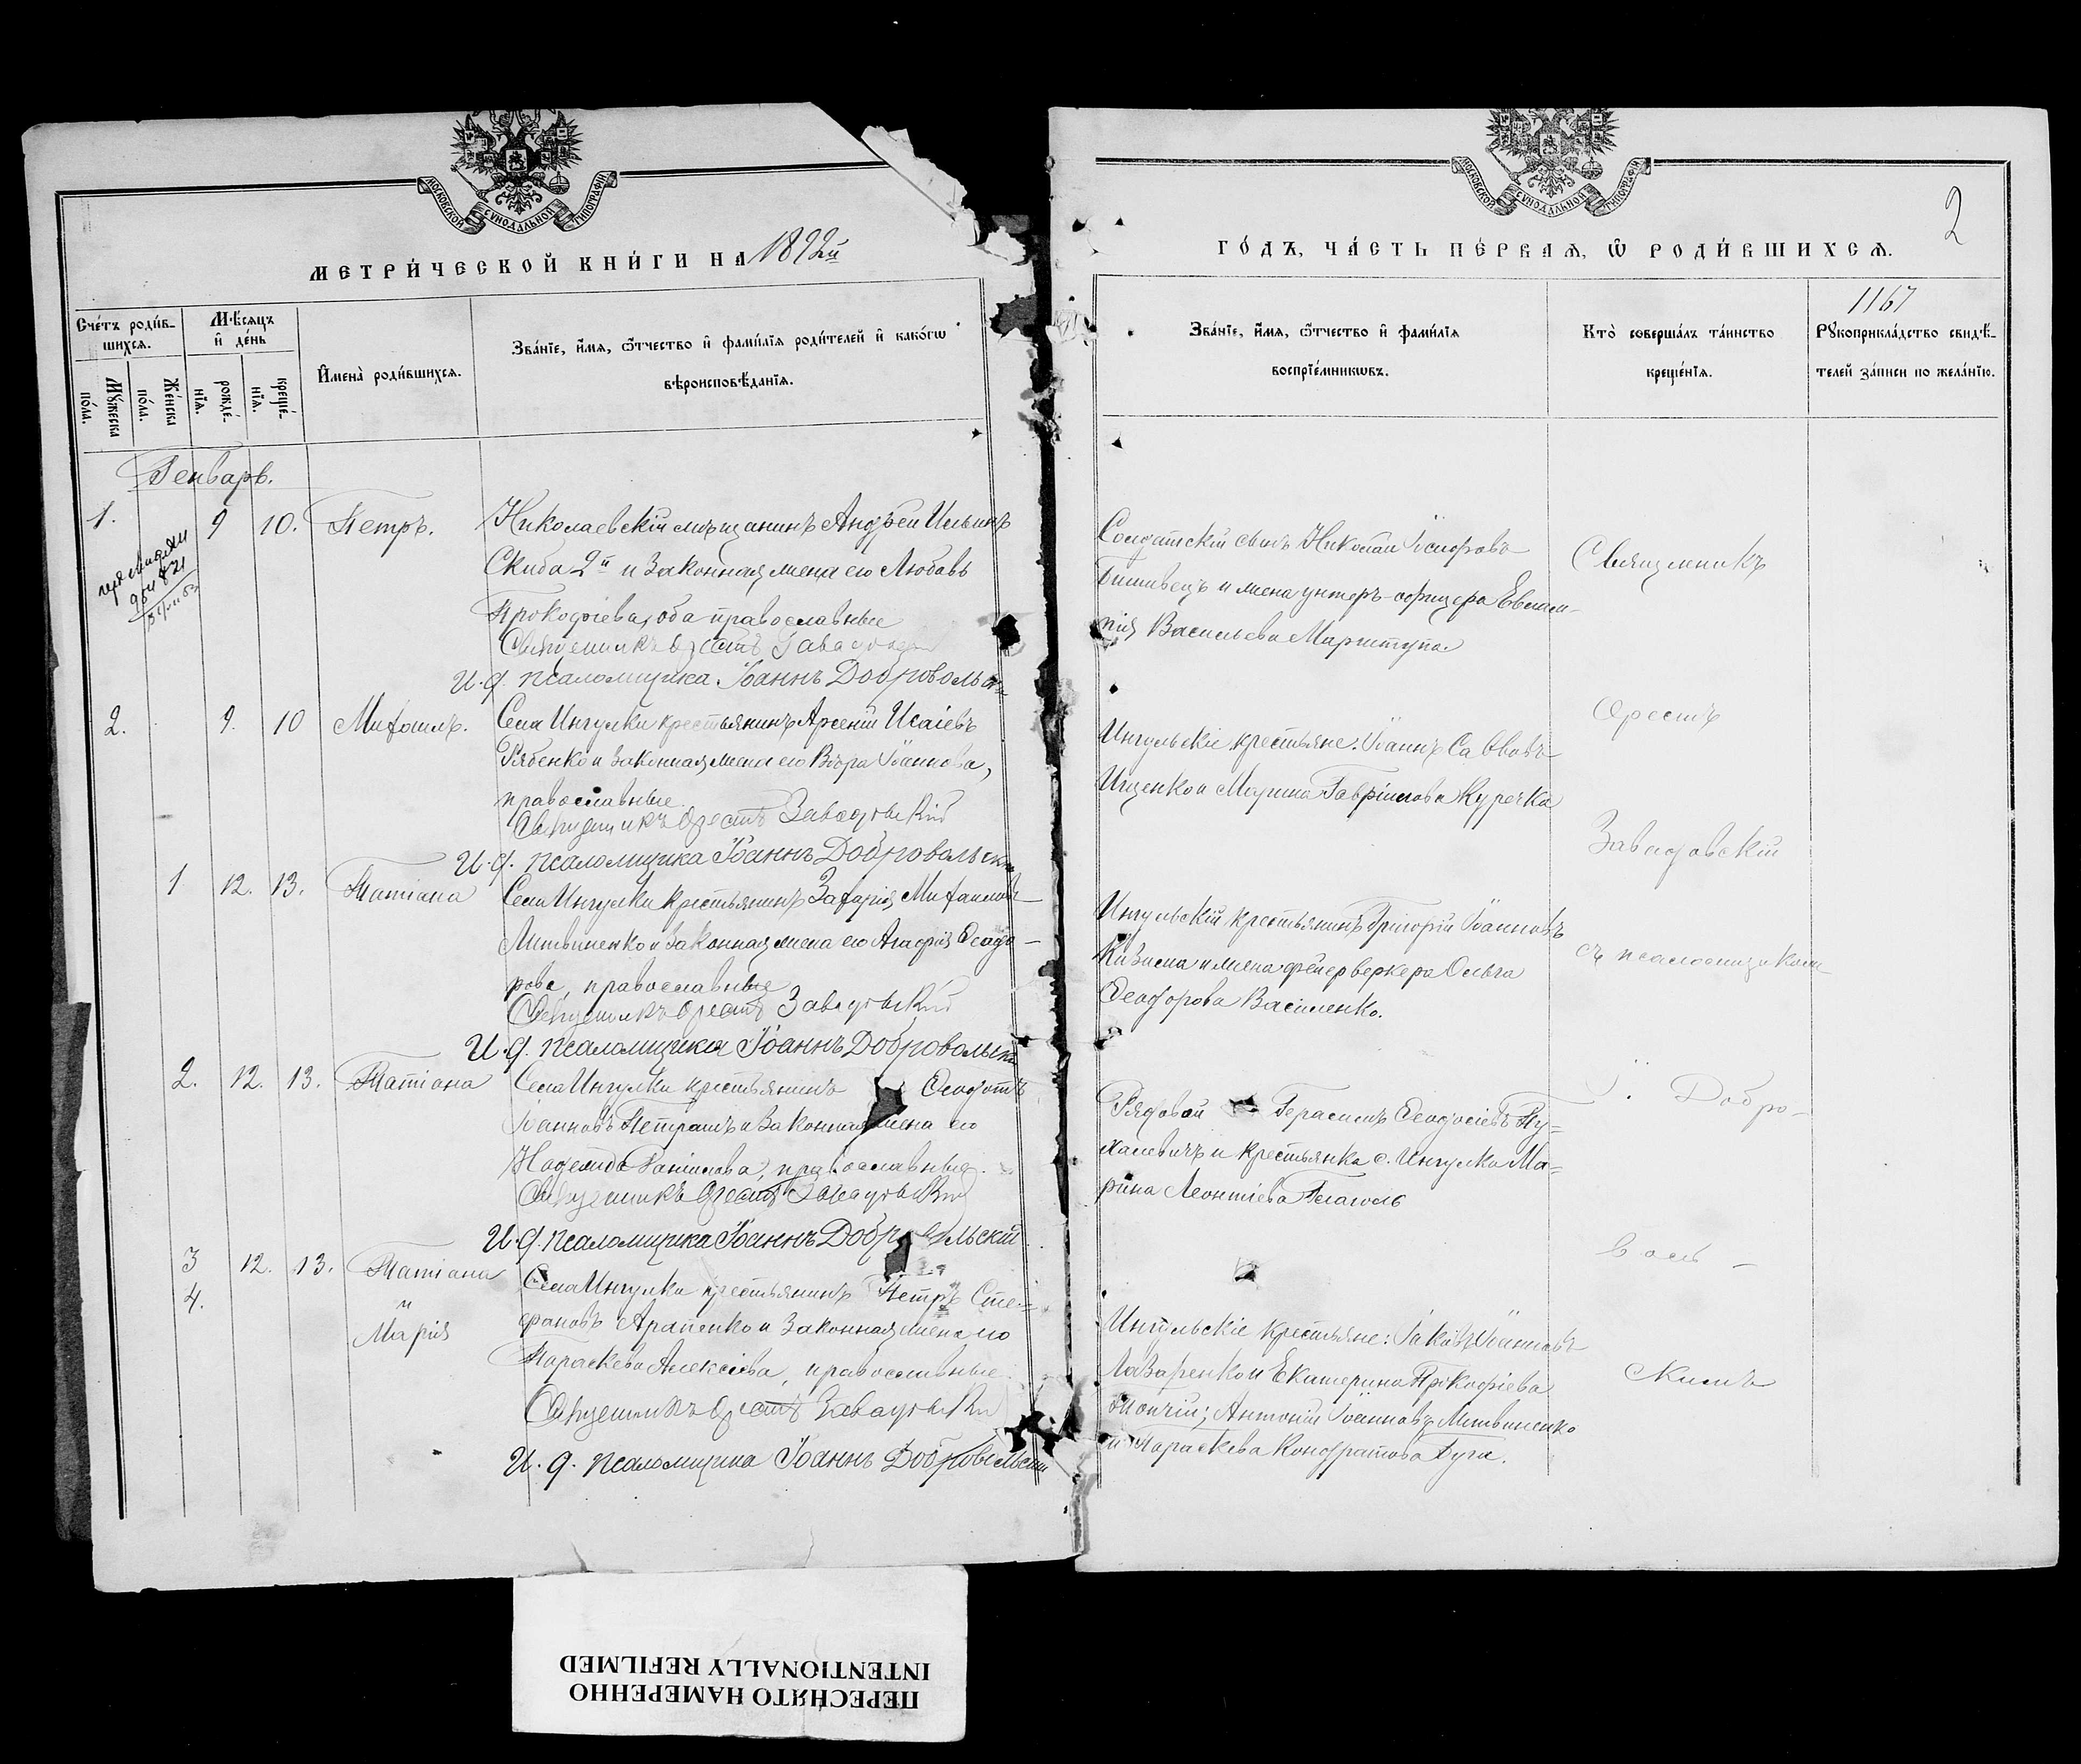 МОСКОВСКОЙ СУНОДАЛЬНОЙ ТИПОГРАФІИ
МЕТРИ́ЧЕСКОЙ КНИ́ГИ НА 1892й
Сче́тъ роди́в-
шихсѧ.
Мѣ́сѧцъ
и҆ де́нь
Мꙋ́жеска
по́ла.
Же́нска
по́ла.
рожде́-
нїѧ.
креще́-
нїѧ.
И҆мена̀ роди́вшихсѧ.
Зва́нїе, и҆́мѧ, ѻ҆́тчество и҆ фами́лїѧ роди́телей и҆ како́гѡ
вѣроисповѣ́данїѧ.
Генварь.
1. 9 10. Петръ. Николаевскій мѣщанинъ Андрей Ильинъ
Скиба 2й и законная жена его Любовь
Прокофіева, оба православные
Священникъ Орестъ Завадовскій
И. д. псаломщика Іоаннъ Добровольскій
2. 9. 10 Михаилъ. Села Ингулки крестьянинъ Арсеній Исаіевъ
Рябенко и законная жена его Вѣра Іоаннова,
православные.
Священникъ Орестъ Завадовскій
И. д. псаломщика Іоаннъ Добровольскій
1 12. 13. Татіана Села Ингулки крестьянинъ Захарія Михаиловъ
Литвиненко и законная жена его Агафія Ѳеодо-
рова, православные
Священникъ Орестъ Завадовскій
И. д. псаломщика Іоаннъ Добровольскій
2. 12. 13. Татіана Села Ингулки крестьянинъ Ѳеодотъ
Іоанновъ Петрашъ и законная жена его
Надежда Даніилова, православные.
Священникъ Орестъ Завадовскій
И. д. псаломщика Іоаннъ Добровольскій
3 12. 13. Татіана Села Ингулки крестьянинъ Петръ Сте-
4. и фановъ Арапенко и законная жена его
Марія Параскева Алексіева, православные.
Священникъ Орестъ Завадовскій
И. д. псаломщика Іоаннъ Добровольскій
МОСКОВСКОЙ СУНОДАЛЬНОЙ ТИПОГРАФІИ
2
ГО́ДЪ, ЧА́СТЬ ПЕ́РВАѦ, Ѡ҆ РОДИ́ВШИХСѦ.
1167
Зва́нїе, и҆́мѧ, ѻ҆́тчество и҆ фами́лїѧ
воспрїе́мникѡвъ.
Кто̀ соверша́лъ та́инство
креще́нїѧ.
Рꙋкоприкла́дство свидѣ́-
телей за́писи по жела́нїю.
Солдатскій сынъ Николай
и жена унтеръ-офицера Евлам-
пія Васильева
Ингульскіе крестьяне: Іоаннъ Савовъ
Ищенко и Марина Гавріилова Курочка
Ингульскій крестьянинъ Григорій Іоанновъ
и жена фейерверкера Ольга
Ѳеодорова Василенко.
Рядовой Герасимъ Ѳеодосіевъ Пу-
халевичъ и крестьянка с. Ингулки Ма-
рина Леонтіева
Ингульскіе крестьяне: Іаковъ Іоанновъ
Лазаренко и Екатерина Прокофіева
Антоній Іоанновъ Литвиненко
и Параскева Кондратова
Священникъ
Орестъ
Завадовскій
съ псаломщикомъ
І. Добро-
воль-
скимъ
ПЕРЕСНЯТО НАМЕРЕННО
INTENTIONALLY REFILMED